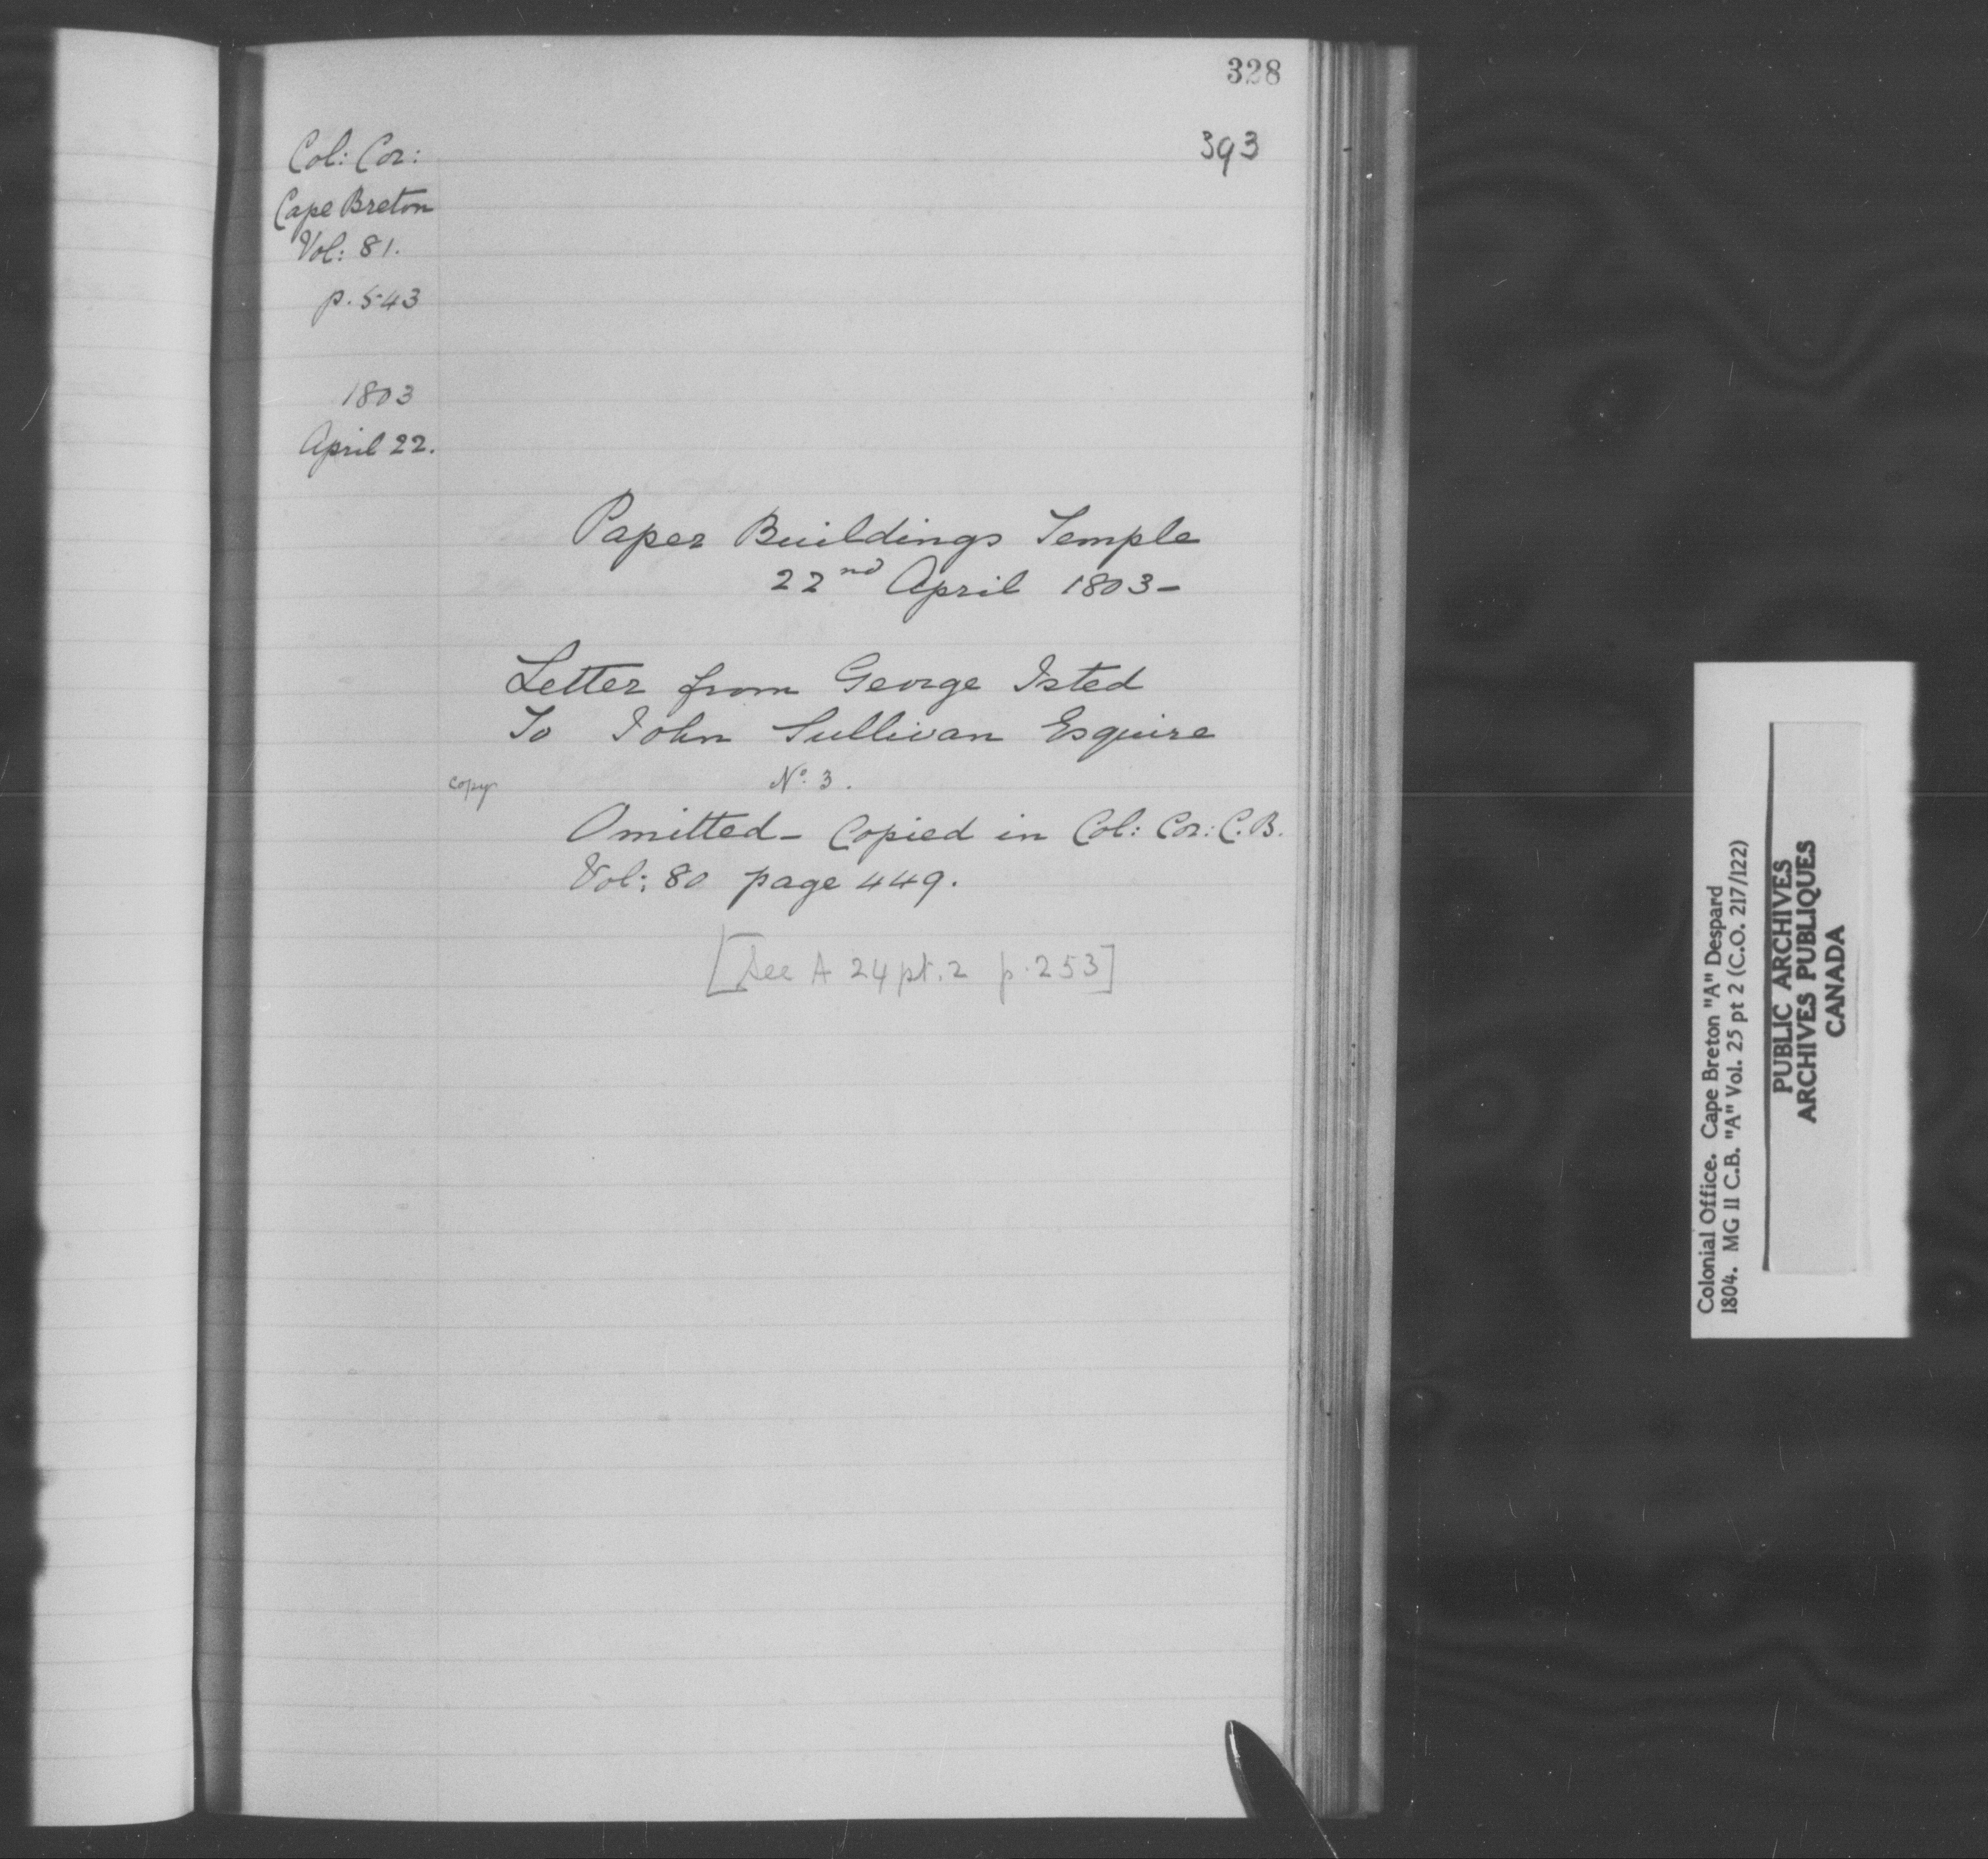 328
393
Col: Cor:
Cape Breton
Vol: 81.
p. 543
1803
April 22.
Paper Buildings Temple
22nd April 1803-
Letter from George Isted
To John Sullivan Esquire
copy No. 3.
Omitted - Copied in Col: Cor: C.B.
Vol: 80 page 449.
[See A 24 pt. 2 p. 253]
Colonial Office. Cape Breton "A" Despard
1804. MG 11 C.B. "A" Vol. 25 pt 2 (C.O. 217/122)
PUBLIC ARCHIVES
ARCHIVES PUBLIQUES
CANADA